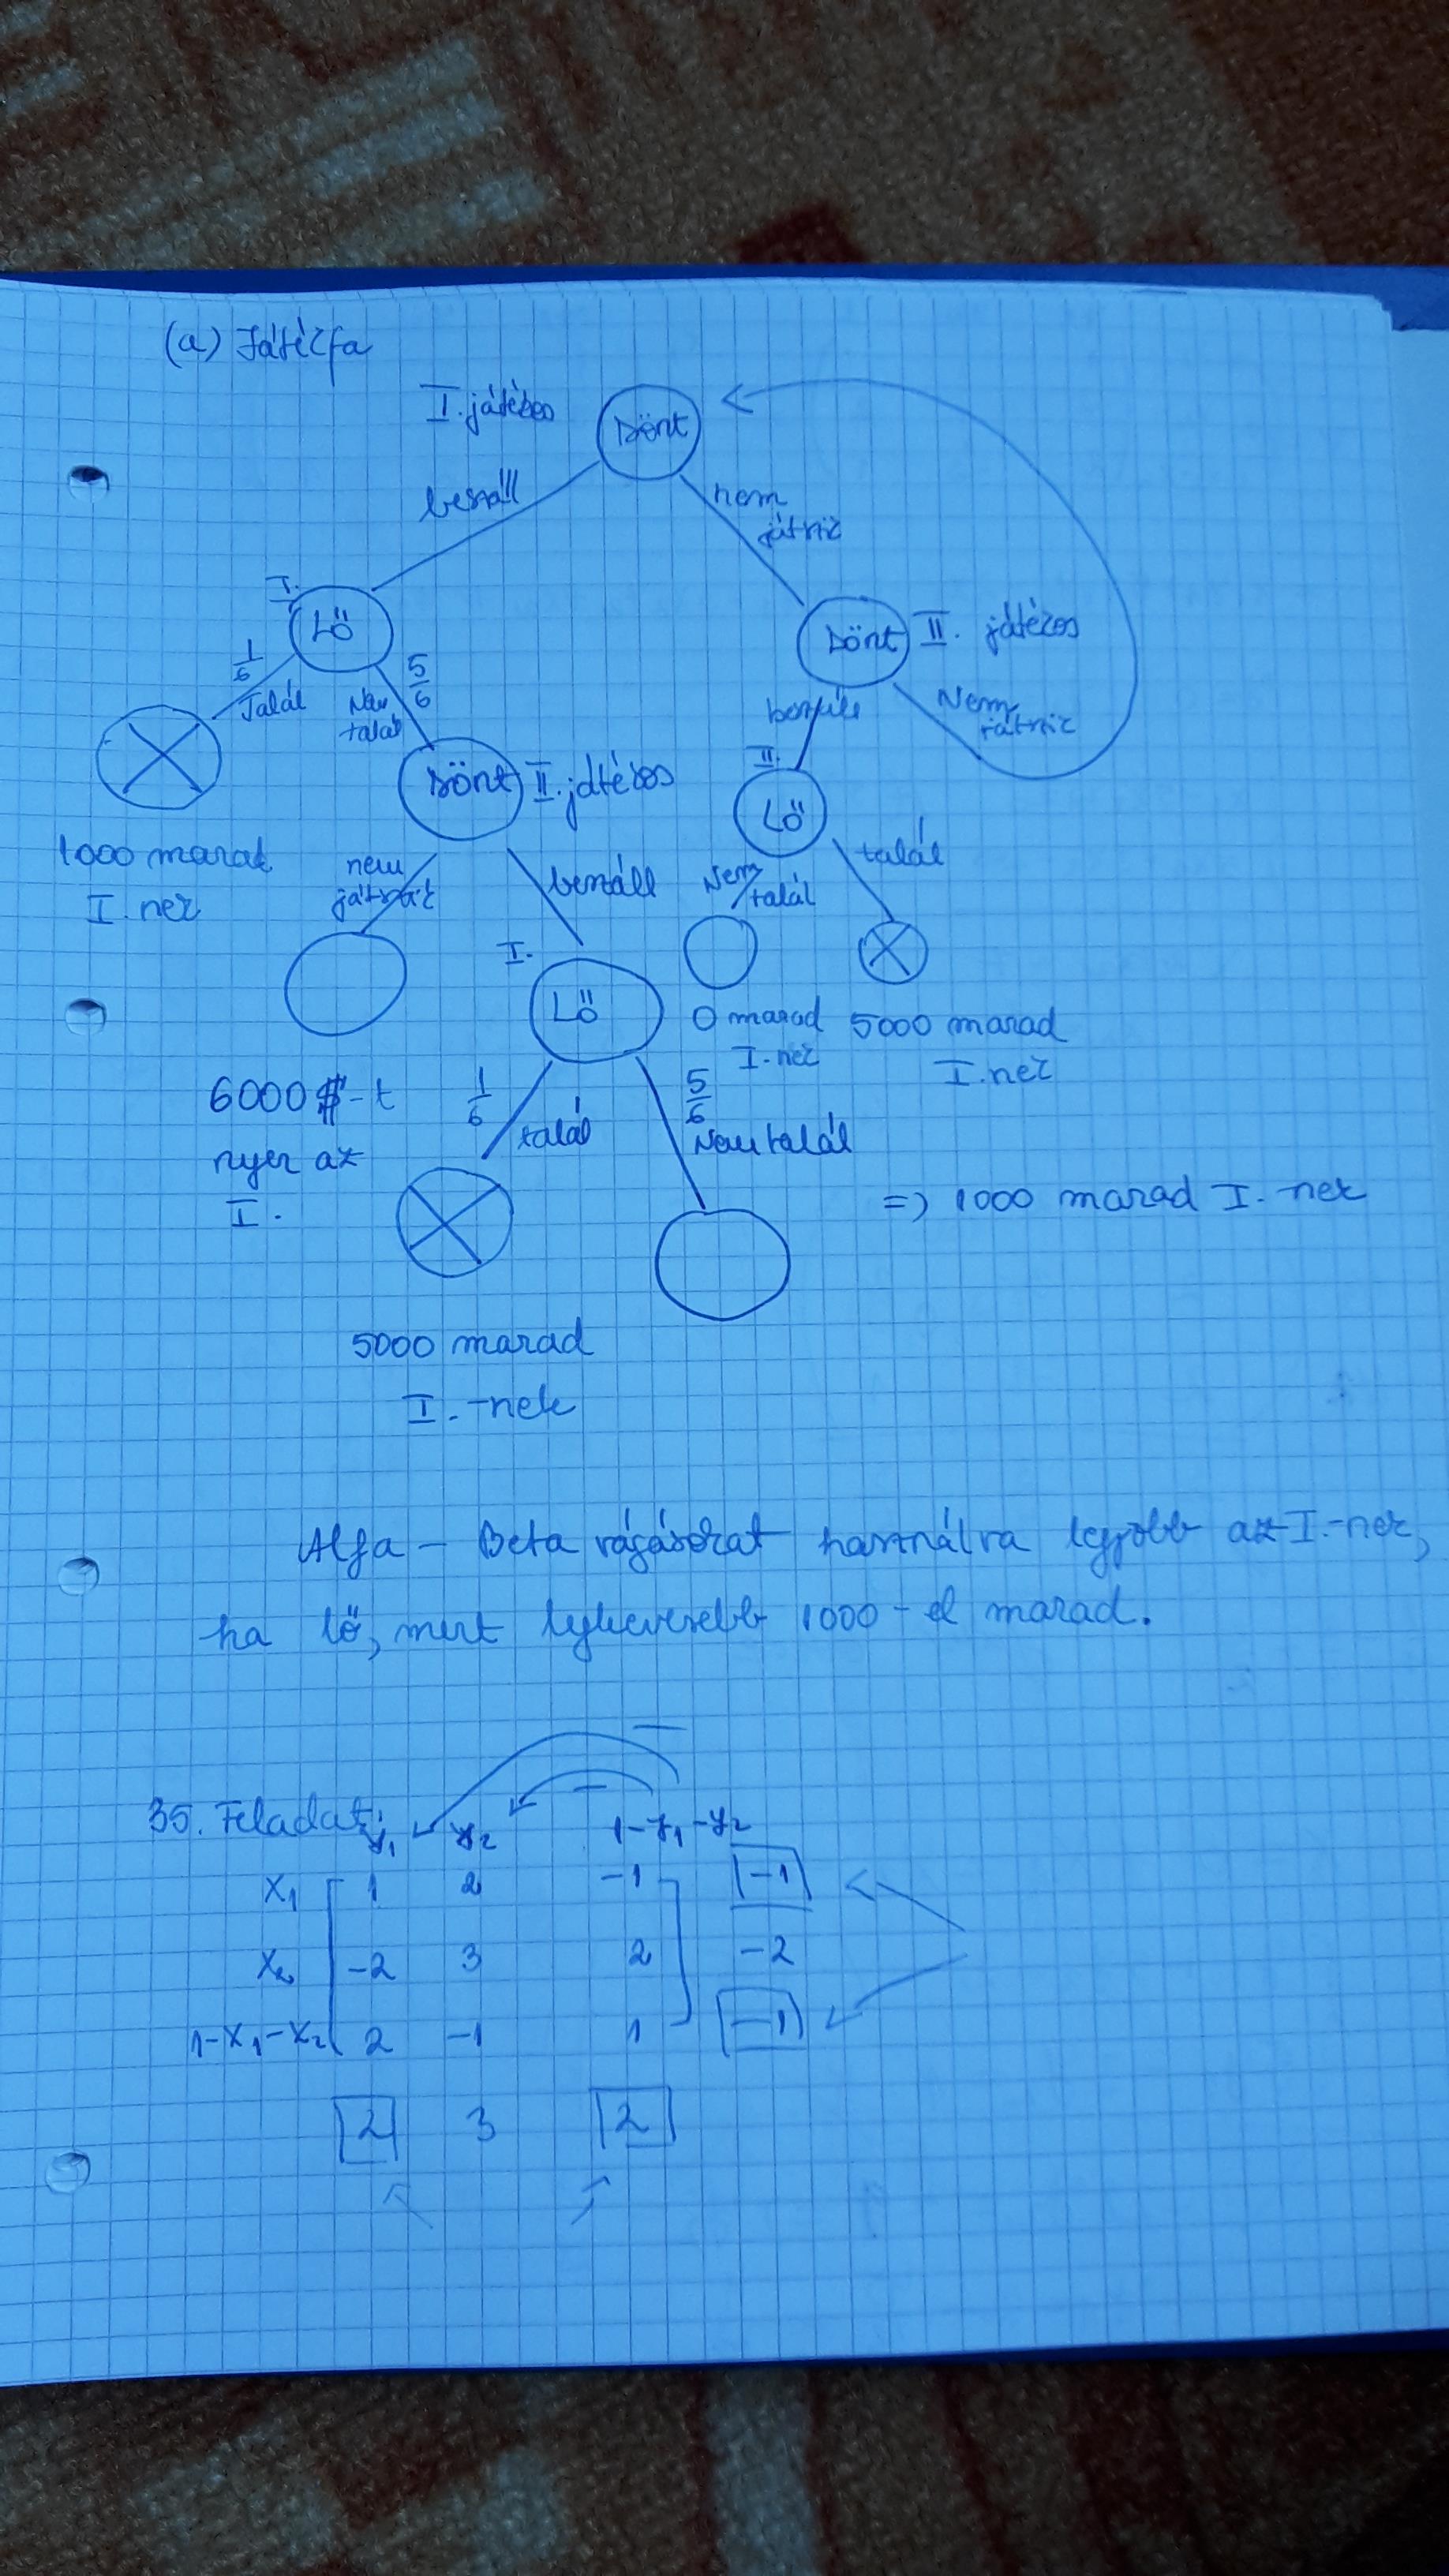 (a) Játékfa
I. játékos
Dönt
beszáll
nem
játszik
I.
Lő
Dönt II. játékos
1/6
Talál
Nem
talál
5/6
beszáll
Nem
játszik
Dönt II. játékos
II.
Lő
1000 marad
I. nek
nem
játszik
beszáll
Nem
talál
talál
I.
Lő
0 marad
I. nek
5000 marad
I. nek
6000 $-t
nyer az
I.
1/6
talál
5/6
Nem talál
=> 1000 marad I. nek
5000 marad
I. -nek
Alfa - Beta vágásokat használva legjobb az I.-nek,
ha lő, mert legkevesebb 1000-el marad.
35. Feladat:
y1 y2 1-y1-y2
x1 1 2 -1 -1
x2 -2 3 2 -2
1-x1-x2 2 -1 1 -1
2 3 2